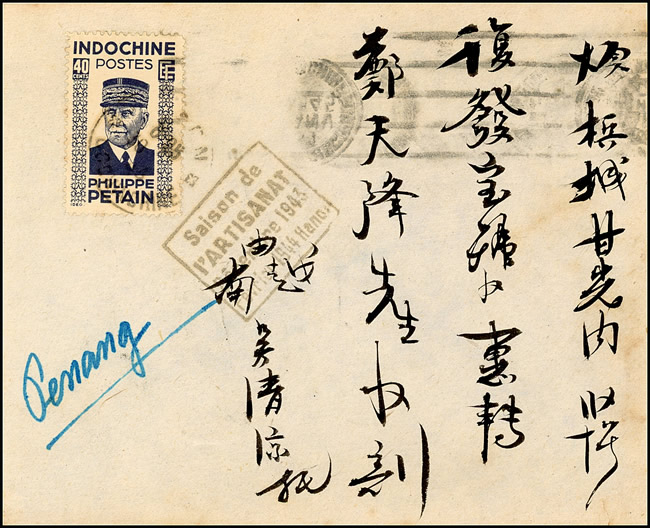 INDOCHINE
POSTES
40 CENTS
PHILIPPE
PETAIN
Saison de
l'ARTISANAT
1943
1944 Hanoi
檳城甘光內
復發宝號收 惠轉
鄭天降先生收
由越南
吳清涼
Penang